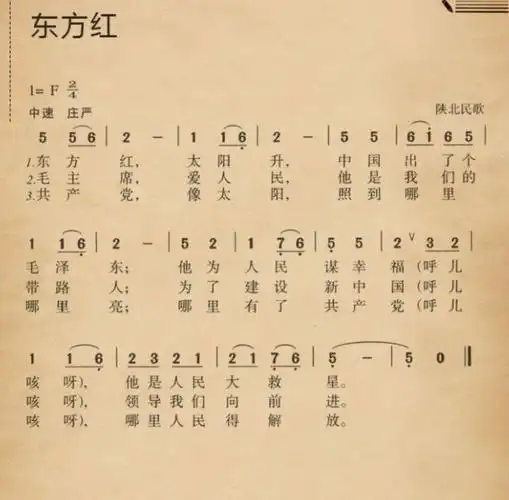 东方红
1= F 2/4
中速 庄严
陕北民歌
5 5 6 | 2 - | 1 1 6 | 2 - | 5 5 | 6 i 6 5 |
1.东 方 红, 太 阳 升, 中 国 出 了 个
2.毛 主 席, 爱 人 民, 他 是 我 们 的
3.共 产 党, 像 太 阳, 照 到 哪 里
1 1 6 | 2 - | 5 2 | 1 7 6 | 5 5 | 2 ∨ 3 2 |
毛 泽 东; 他 为 人 民 谋 幸 福 (呼 儿
带 路 人; 为 了 建 设 新 中 国 (呼 儿
哪 里 亮; 哪 里 有 了 共 产 党 (呼 儿
1 1 6 | 2 3 2 1 | 2 1 7 6 | 5 - | 5 0 ‖
咳 呀), 他 是 人 民 大 救 星。
咳 呀), 领 导 我 们 向 前 进。
咳 呀), 哪 里 人 民 得 解 放。